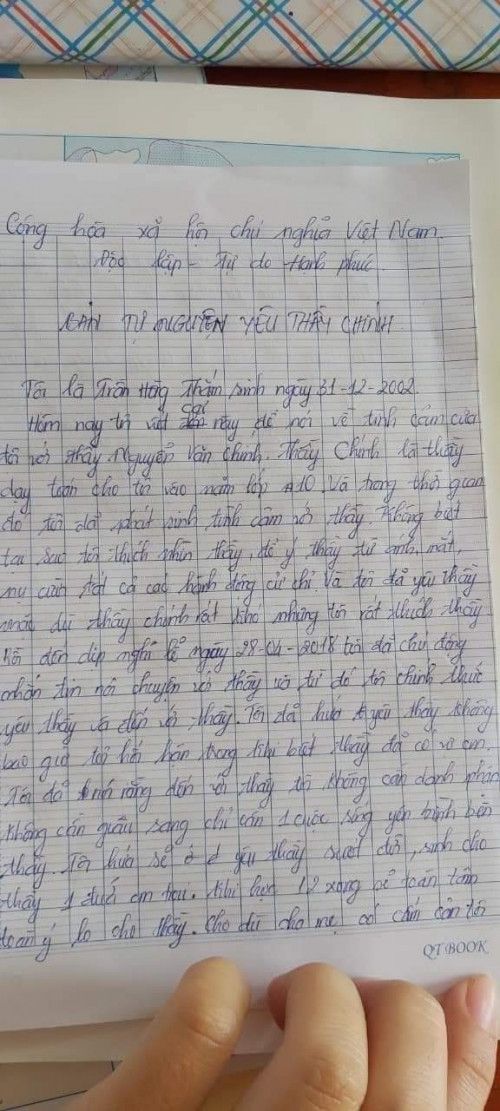 Cộng hòa xã hội chủ nghĩa Việt Nam.
Độc lập - Tự do - Hạnh phúc.
BẢN TỰ NGUYỆN YÊU THẦY CHÍNH
Tôi là Trần Hồng Thắm sinh ngày 31-12-2002.
Hôm nay tôi viết cái này để nói về tình cảm của
tôi với thầy Nguyễn Văn Chính. Thầy Chính là thầy
dạy toán cho tôi vào năm lớp A10 và trong thời gian
đó tôi đã phát sinh tình cảm với thầy. Không biết
tại sao tôi thích nhìn thầy, để ý thầy từ ánh mắt,
nụ cười tất cả các hành động cử chỉ. Và tôi đã yêu thầy
mặc dù thầy chính rất khó nhưng tôi rất thích thầy
đến dịp nghỉ lễ ngày 28-04-2018 tôi đã chủ động
nhắn tin nói chuyện với thầy và từ đó tôi chính thức
yêu thầy và đến với thầy. Tôi đã hứa yêu thầy không
bao giờ tôi hối hận trong khi biết thầy đã có vợ con.
Tôi đã rằng đến với thầy tôi không cần danh phận
không cần giàu sang chỉ cần 1 cuộc sống yên bình bên
thầy. Tôi hứa sẽ yêu thầy suốt đời, sinh cho
thầy 1 đứa con trai. khi học 12 xong sẽ toàn tâm
toàn ý lo cho thầy. Cho dù cha mẹ có cấm cản tôi
QT BOOK